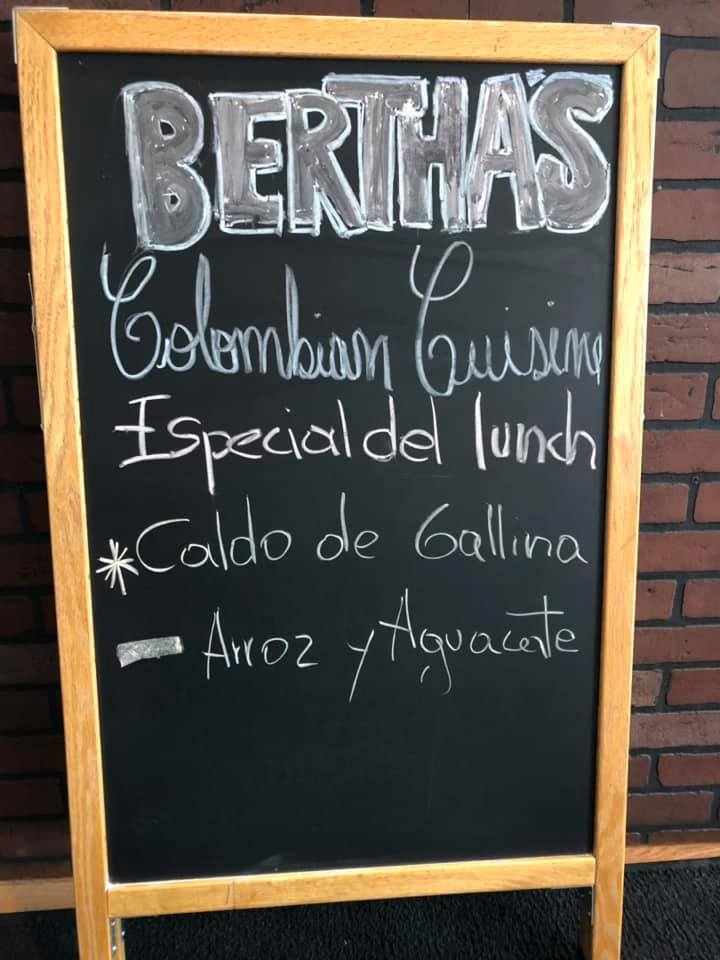 BERTHA'S
Colombian Cuisine
Especial del lunch
*Caldo de Gallina
- Arroz y Aguacate